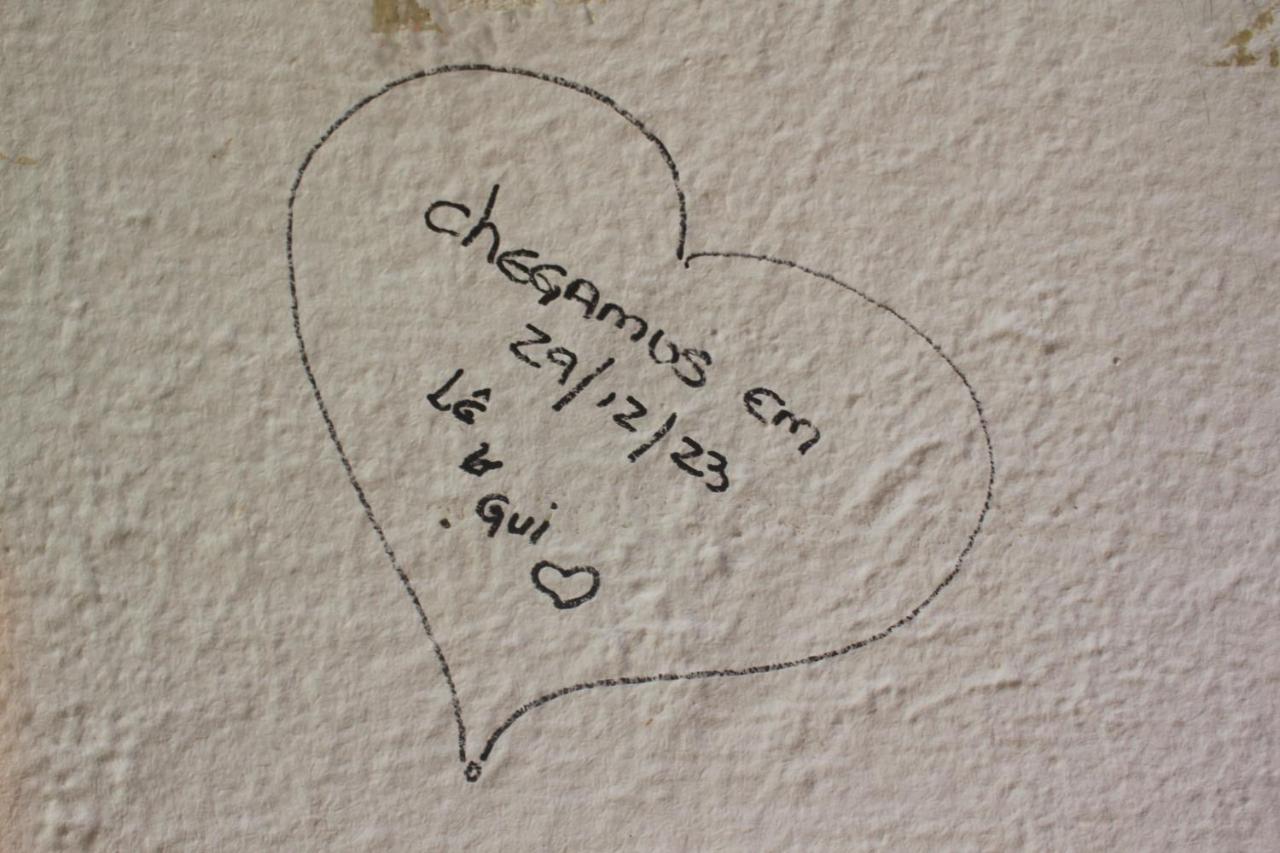 ChEGAmUS Em
29/12/23
LÊ
&
Gui